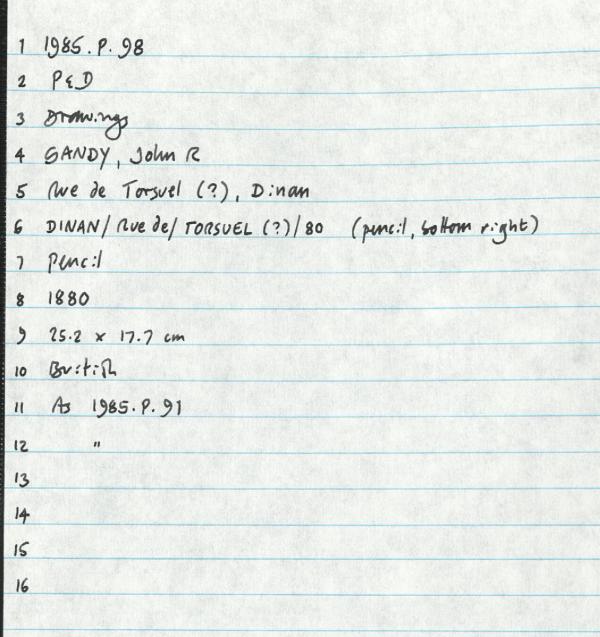 1 1985.P.98
2 P&D
3 Drawings
4 GANDY, John R
5 Rue de Torsuel (?), Dinan
6 DINAN/ Rue de/ TORSUEL (?)/80 (pencil, bottom right)
7 Pencil
8 1880
9 25.2 x 17.7 cm
10 British
11 As 1985.P.91
12 "
13
14
15
16